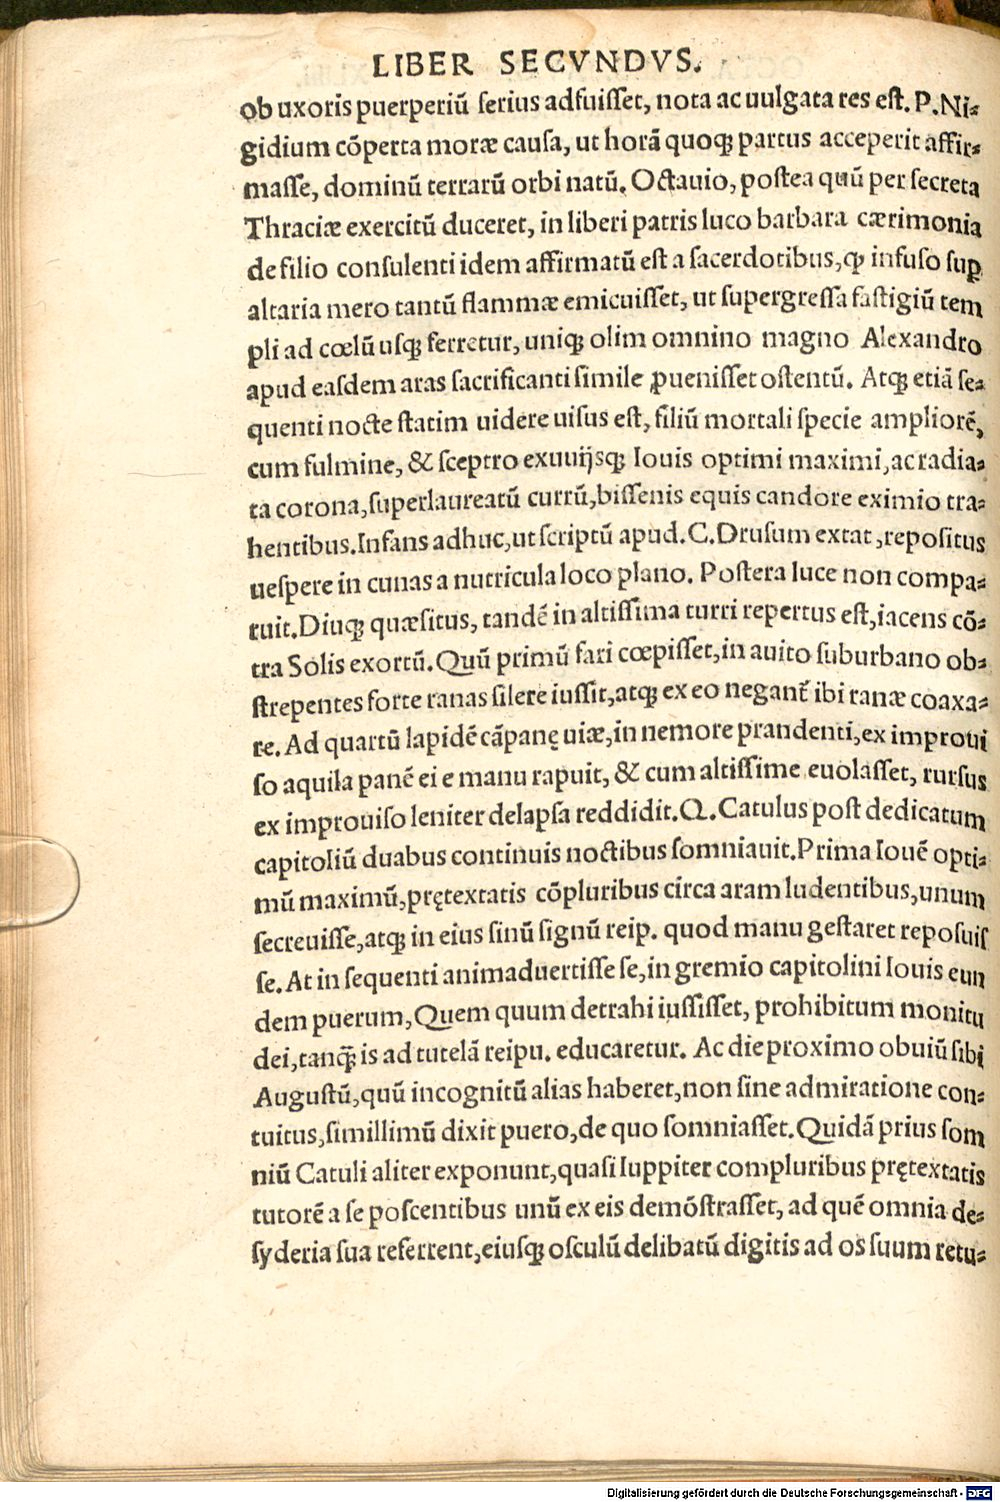 LIBER SECVNDVS.
ob uxoris puerperiū ſerius adfuiſſet, nota ac uulgata res eſt. P. Ni⸗
gidium cōperta moræ cauſa, ut horā quoqꝫ partus acceperit affir⸗
maſſe, dominū terrarū orbi natū. Octauio, poſtea quū per ſecreta
Thraciæ exercitū duceret, in liberi patris luco barbara cærimonia
de filio conſulenti idem affirmatū eſt a ſacerdotibus, ꝙ infuſo ſuꝑ
altaria mero tantū flammæ emicuiſſet, ut ſupergreſſa faſtigiū tem
pli ad cœlū uſqꝫ ferretur, uniqꝫ olim omnino magno Alexandro
apud eaſdem aras ſacrificanti ſimile ꝓueniſſet oſtentū. Atqꝫ etiā ſe⸗
quenti nocte ſtatim uidere uiſus eſt, filiū mortali ſpecie ampliorē,
cum fulmine, & ſceptro exuuijsqꝫ Iouis optimi maximi, ac radia⸗
ta corona, ſuperlaureatū currū, biſſenis equis candore eximio tra⸗
hentibus. Infans adhuc, ut ſcriptū apud. C. Druſum extat, repoſitus
ueſpere in cunas a nutricula loco plano. Poſtera luce non compa⸗
ruit. Diuqꝫ quæſitus, tandē in altiſſima turri repertus eſt, iacens cō⸗
tra Solis exortū. Quū primū fari cœpiſſet, in auito ſuburbano ob⸗
ſtrepentes forte ranas ſilere iuſſit, atqꝫ ex eo negant̃ ibi ranæ coaxa⸗
re. Ad quartū lapidē cāpanę uiæ, in nemore prandenti, ex improui
ſo aquila panē ei e manu rapuit, & cum altiſſime euolaſſet, rurſus
ex improuiſo leniter delapſa reddidit. Q. Catulus poſt dedicatum
capitoliū duabus continuis noctibus ſomniauit. Prima Iouē opti⸗
mū maximū, prętextatis cōpluribus circa aram ludentibus, unum
ſecreuiſſe, atqꝫ in eius ſinū ſignū reip. quod manu geſtaret repoſuiſ
ſe. At in ſequenti animaduertiſſe ſe, in gremio capitolini Iouis eun
dem puerum, Quem quum detrahi iuſſiſſet, prohibitum monitu
dei, tanqꝫ̄ is ad tutelā reipu. educaretur. Ac die proximo obuiū ſibi
Auguſtū, quū incognitū alias haberet, non ſine admiratione con⸗
tuitus, ſimillimū dixit puero, de quo ſomniaſſet. Quidā prius ſom
niū Catuli aliter exponunt, quaſi Iuppiter compluribus prętextatis
tutorē a ſe poſcentibus unū ex eis demōſtraſſet, ad quē omnia de⸗
ſyderia ſua referrent, eiuſqꝫ oſculū delibatū digitis ad os ſuum retu⸗
Digitalisierung gefördert durch die Deutsche Forschungsgemeinschaft - DFG